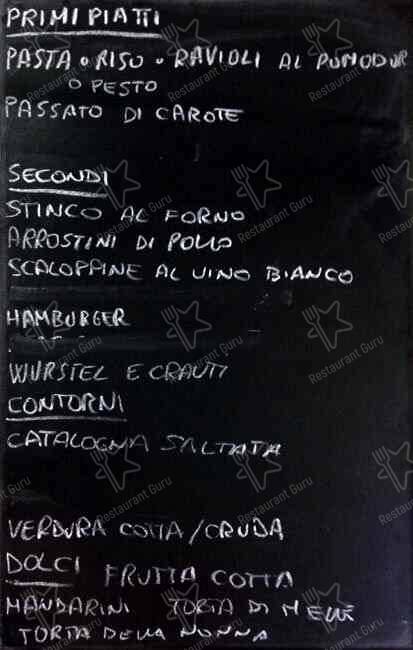 PRIMI PIATTI
PASTA O RISO O RAVIOLI AL POMODOR
O PESTO
PASSATO DI CAROTE
SECONDI
STINCO AL FORNO
ARROSTINI DI POLLO
SCALOPPINE AL VINO BIANCO
HAMBURGER
WURSTEL E CRAUTI
CONTORNI
CATALOGNA SALTATA
VERDURA COTTA/CRUDA
DOLCI FRUTTA COTTA
MANDARINI TORTA DI MELE
TORTA DELLA NONNA
Restaurant Guru